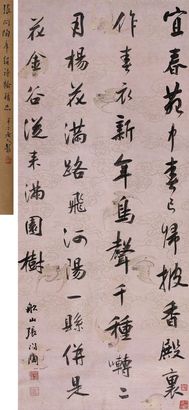 宜春苑中春已歸披香殿裏
作春衣新年鳥聲千種囀二
月楊花滿路飛河陽一縣併是
花金谷從來滿園樹
船山張問陶
張問陶